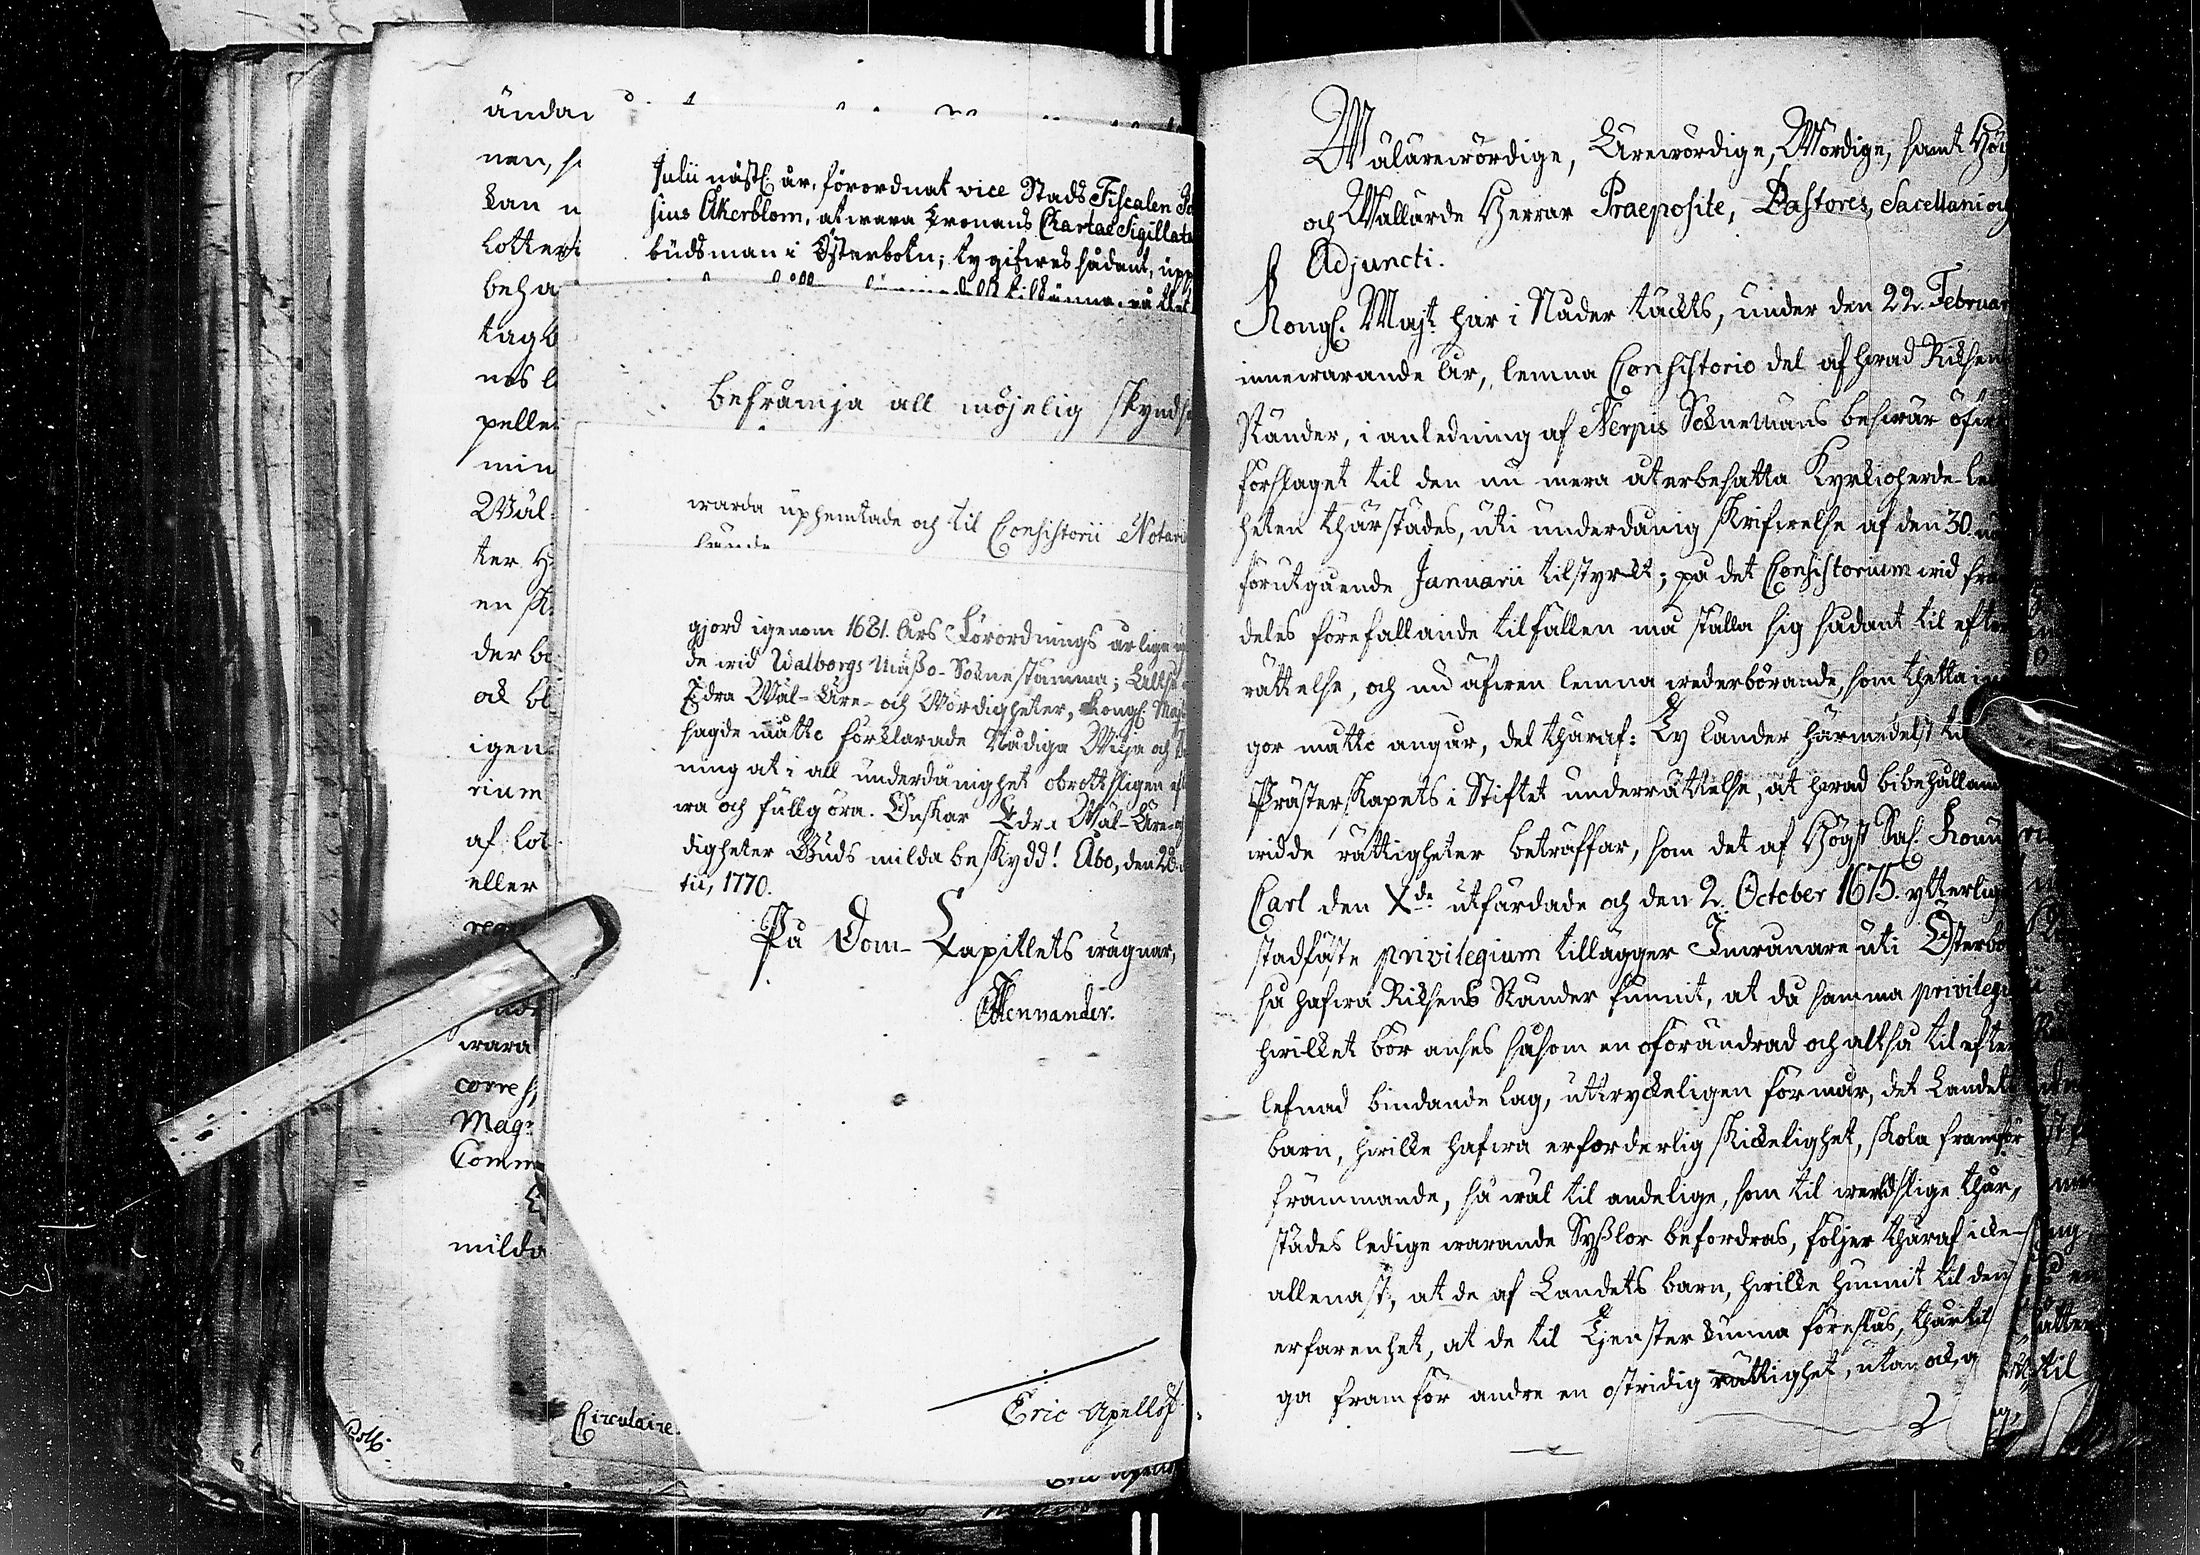 ändar
nen, s
kan u
lotteri
beha
tagb
nes l
pelle
min
Wäl-
ter H
en sk
der b
ock bl
igen
rium
af lot
eller
wara
corres
Mag:
Comm
milda
Julii nästl. år, förordnat vice Stads Fiscalen
sius Åkerblom, at wara Cronans Chartae Sigillatae
budsman i Österbotn; ty gifwes sådant,
befrämja all möjelig skynds
warda uphemtade och til Consistorii Notari
sände
gjord igenom 1681. Års Förordnings årlige
de wid Walborgs Mässo-Sockne stämma; Altså
Edra Wäl-Äre- och Wördigheter, Kongl. Maj:ts
sagde måtto förklarade Nådige Wilja och
ning at i all underdånighet obrottsligen ef
wa och fullgöra. Önskar Edra Wäl-Äre- och
digheter Guds milda beskydd! Åbo, den 28
tii, 1770.
På Dom-Capitlets wägnar,
CFMennander.
Eric Apellöf
Circulaire.
Wäl ärewördige, Ärewördige, Wördige, samt Hög
och Wällärde Herrar Praeposite, Pastores, Sacellani och
Adjuncti.
Kongl. Majt har i Nåder täckts, under den 22. Februar
innewarande år, lemna Consistorio del af hwad Riksens
Ständer, i anledning af Nerpis Soknemäns beswär öfwer
förslaget til den nu mera återbesatta Kyrkioherde-le
heten thärstädes, uti underdånig skrifwelse af den 30.
förutgående Januarii tilstyrkt; på det Consistorium wid fram
deles förefallande tilfällen må ställa sig sådant til efter
rättelse, och nu äfwen lemna wederbörande, som thetta i
gor måtto angår, del thäraf: Ty länder härmedelst til
Prästerskapets i Stiftet underrättelse, at hwad bibehålland
widde rättigheter beträffar, som det af Högst Sal. Konung
Carl den Xde utfärdade och den 2. October 1675. ytterlig
stadfäste privilegium tillägger Inwånare uti Österbo
så hafwa Riksens Ständer funnit, at då samma privilegi
hwilket bör anses såsom en oförändrad och altså til efter
lefnad bindande lag, uttryckeligen förmår, det Landets
barn, hwilke hafwa erforderlig skickelighet, skola framför
främmande, så wäl til andelige, som til werldslige thär,
städes ledige warande Sysslor befordras, följer thäraf icke
allenast, at de af Landets barn, hwilke hunnit til den
erfarenhet, at de til Tjenster kunna föreslås, thärtil
ga framför andre en ostridig rättighet, utan ock,
2